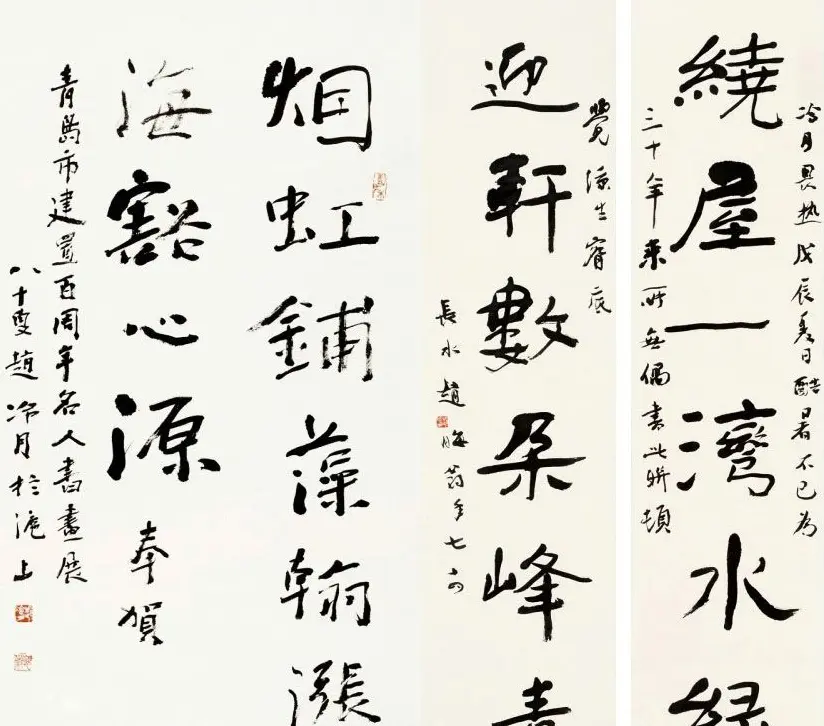 冷月畏热戊辰夏日酷暑不已为
繞屋一灣水緑
三十年来所無偶書此聯頓
覺涼生窗底
迎軒數朵峰青
長水趙晦翁年七
烟虹鋪藻翰漲
海豁心源奉賀
青島市建置百周年名人書畫展
八十叟趙冷月於滬上